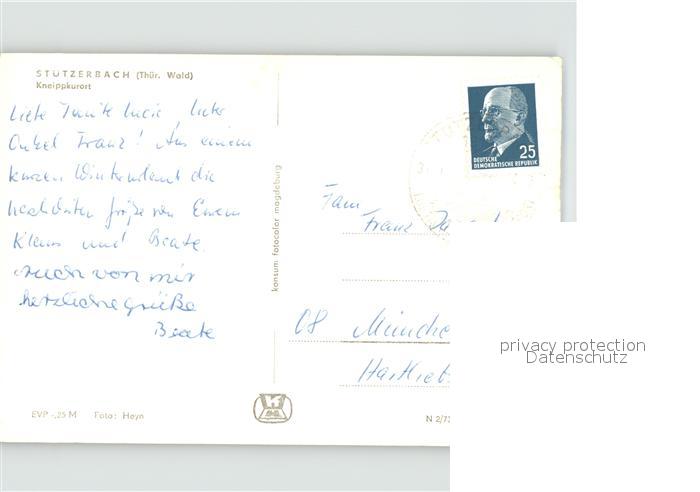 STÜTZERBACH (Thür. Wald)
Kneippkurort
Liebe Tante Lucie, lieber
Onkel Franz! Aus einem
kurzen Winterurlaub die
herzlichsten Grüße von Eurem
Klaus und Beate.
Auch von mir
herzliche Grüße
Beate
EVP -,25 M Foto: Heyn
konsum fotocolor magdeburg
25
DEUTSCHE
DEMOKRATISCHE REPUBLIK
Fam.
Franz
08 Münche
Hartlieb
N 2/73
privacy protection
Datenschutz